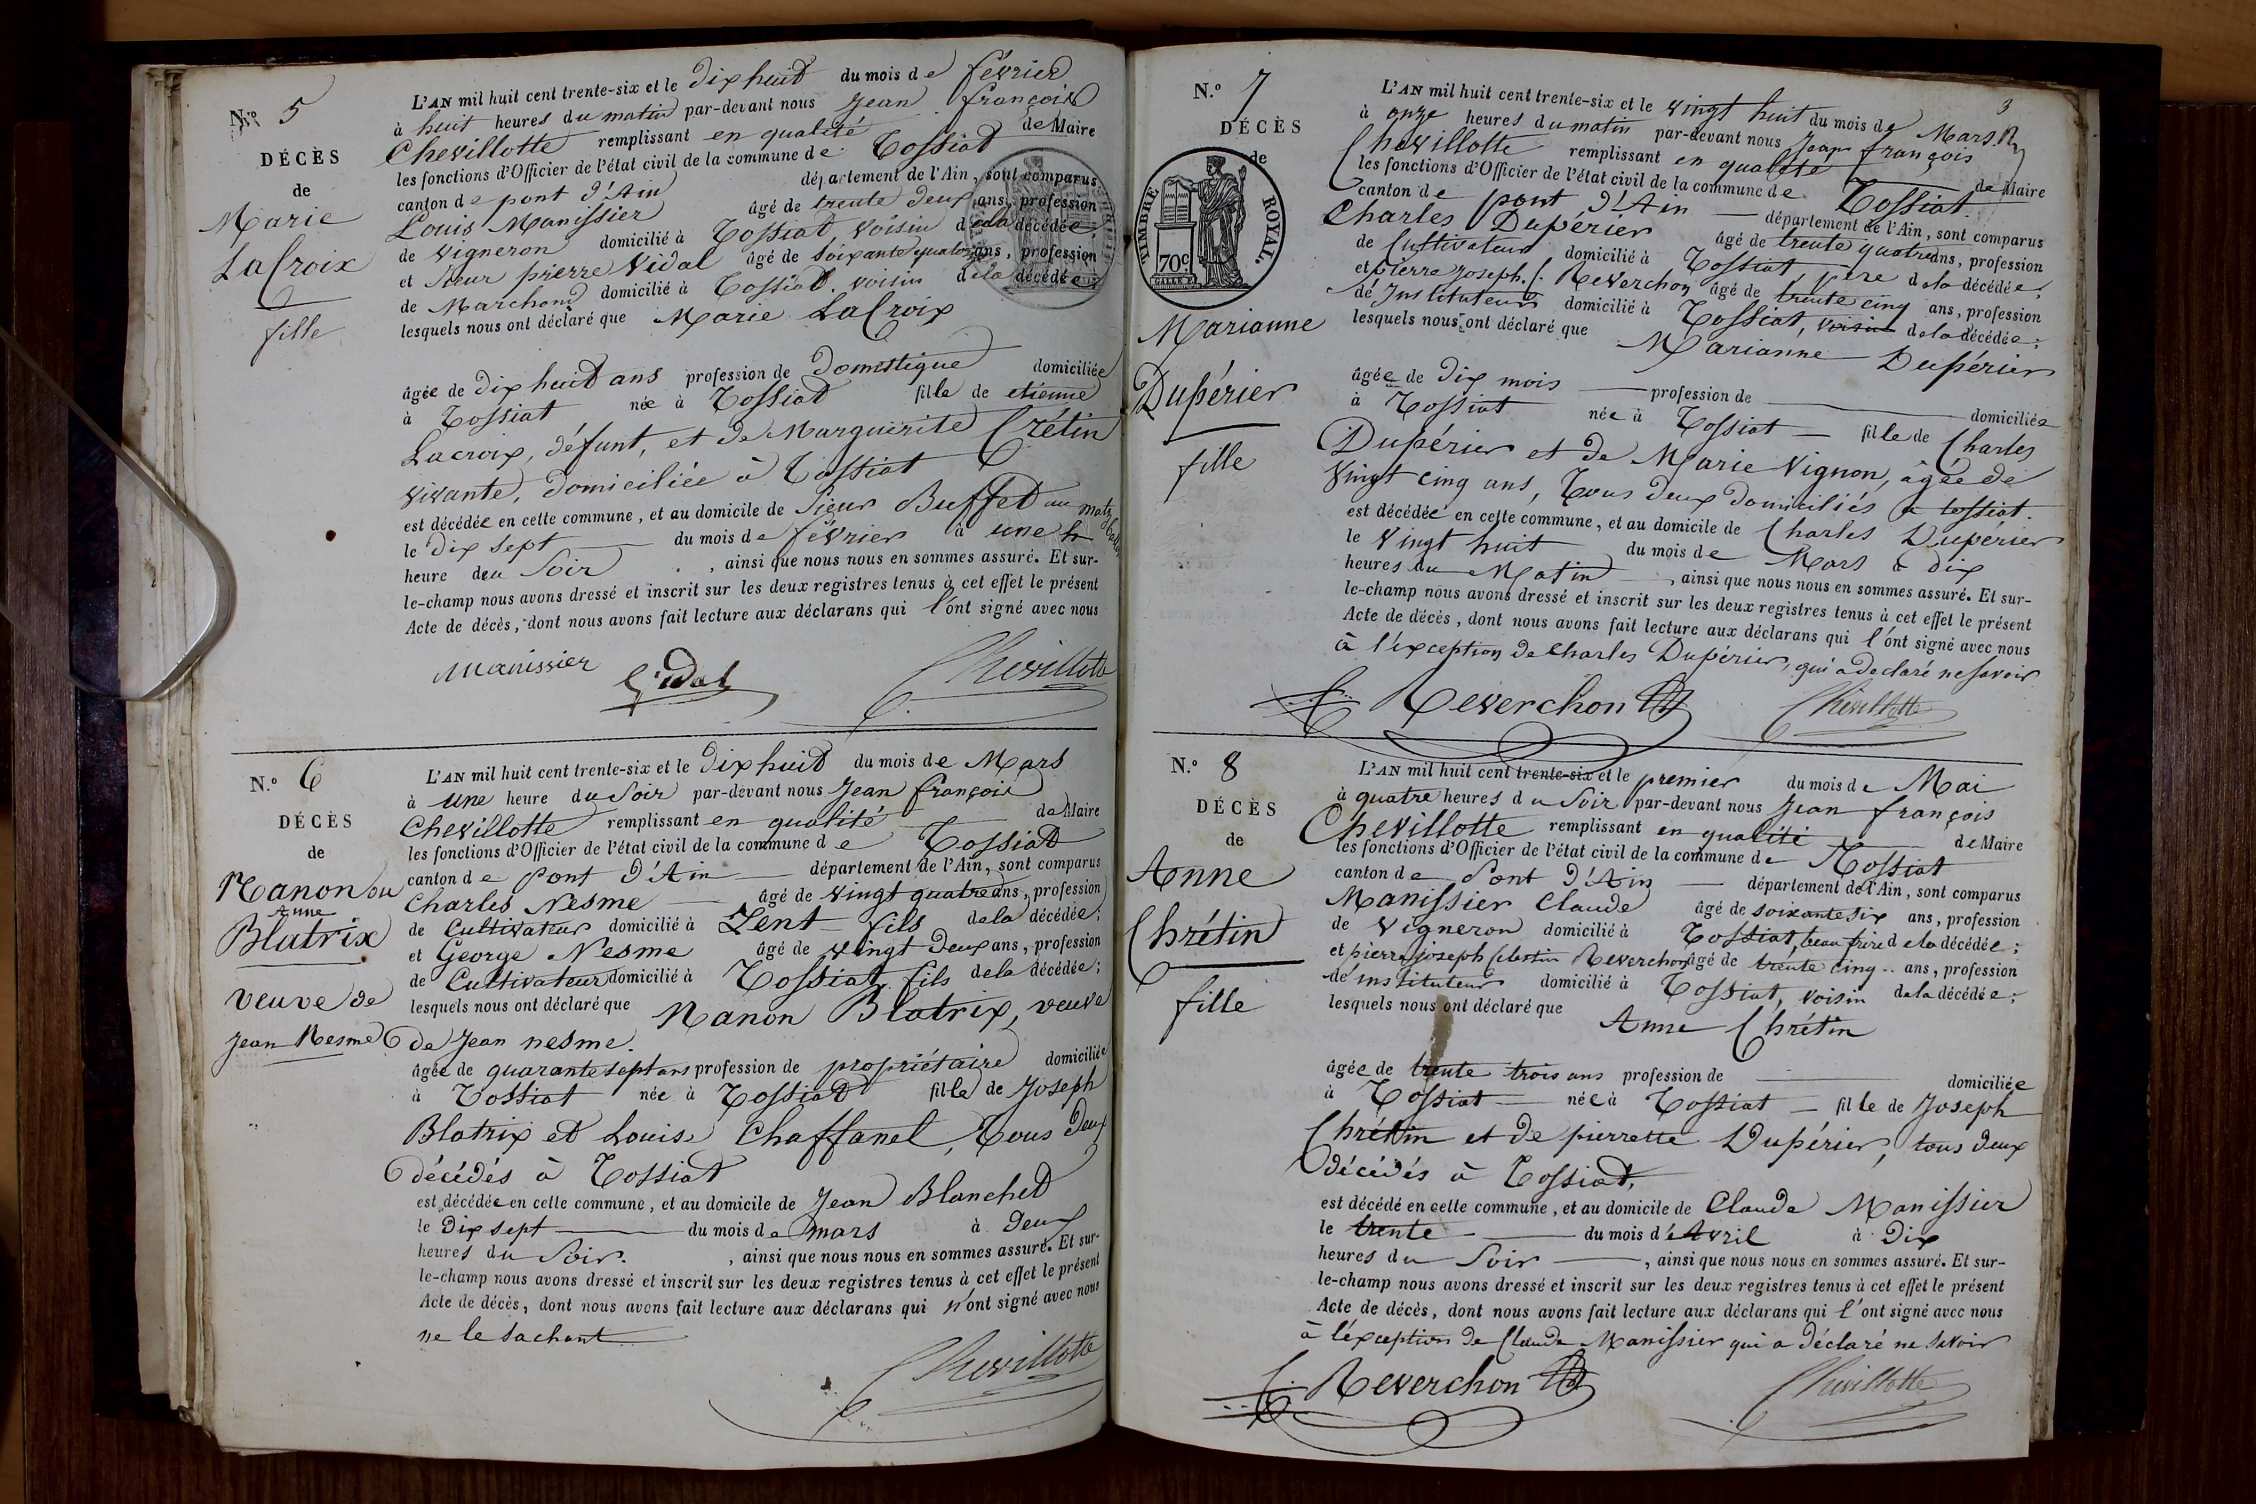 N.º 5
DÉCÈS
de
Marie
LaCroix
fille
L'AN mil huit cent trente-six et le dix huit du mois de février
à huit heures du matin par-devant nous Jean françois
Chevillotte remplissant en qualité de Maire
les fonctions d'Officier de l'état civil de la commune de Tossiat
canton de pont d'Ain département de l'Ain, sont comparus
Louis Manissier âgé de trente deux ans, profession
de vigneron domicilié à Tossiat, voisin de la décédée;
et Sieur pierre Vidal âgé de soixante quatorze ans, profession
de Marchand domicilié à Tossiat. voisin de la décédée;
lesquels nous ont déclaré que Marie LaCroix
âgée de dix huit ans profession de Domestique domiciliée
à Tossiat née à Tossiat fille de etienne
Lacroix, défunt, et de Marguerite Crétin
vivante, domiciliée à Tossiat
est décédée en cette commune, et au domicile de Sieur Buffet au
le dix sept du mois de février à une h
heure du Soir, ainsi que nous nous en sommes assuré. Et sur-
le-champ nous avons dressé et inscrit sur les deux registres tenus à cet effet le présent
Acte de décès, dont nous avons fait lecture aux déclarans qui l'ont signé avec nous
Manissier Vidal Chevillotte
N.º 6
DÉCÈS
de
Nanon ou
Anne
Blatrix
veuve de
Jean Nesme
L'AN mil huit cent trente-six et le dix huit du mois de Mars
à une heure du Soir par-devant nous Jean françois
Chevillotte remplissant en qualité de Maire
les fonctions d'Officier de l'état civil de la commune de Tossiat
canton de Pont d'Ain département de l'Ain, sont comparus
Charles Nesme âgé de vingt quatre ans, profession
de Cultivateur domicilié à Lent fils de la décédée;
et George Nesme âgé de vingt deux ans, profession
de Cultivateur domicilié à Tossiat, fils de la décédée;
lesquels nous ont déclaré que Nanon Blatrix, veuve
de Jean nesme.
âgée de quarante sept ans profession de propriétaire domiciliée
à Tossiat née à Tossiat fille de Joseph
Blatrix et Louise Chaffanel, Tous deux
décédés à Tossiat
est décédée en cette commune, et au domicile de Jean Blanchet
le Dix sept du mois de mars à Deux
heures du Soir., ainsi que nous nous en sommes assuré. Et sur-
le-champ nous avons dressé et inscrit sur les deux registres tenus à cet effet le présent
Acte de décès, dont nous avons fait lecture aux déclarans qui n'ont signé avec nous
ne le sachant
Chevillotte
3
N.º 7
DÉCÈS
de
TIMBRE ROYAL.
70c.
Marianne
Dupérier
fille
L'AN mil huit cent trente-six et le vingt huit du mois de Mars
à onze heures du matin par-devant nous Jean françois
Chevillotte remplissant en qualité de Maire
les fonctions d'Officier de l'état civil de la commune de Tossiat.
canton de pont d'Ain département de l'Ain, sont comparus
Charles Dupérier âgé de trente quatre ans, profession
de Cultivateur domicilié à Tossiat, père de la décédée;
et pierre Joseph C. Reverchon âgé de trente cinq ans, profession
de Instituteur domicilié à Tossiat, voisin de la décédée;
lesquels nous ont déclaré que Marianne Dupérier
âgée de dix mois profession de domiciliée
à Tossiat née à Tossiat fille de Charles
Dupérier et de Marie Vignon, âgée de
vingt cinq ans, Tous deux domiciliés à tossiat.
est décédée en cette commune, et au domicile de Charles Dupérier
le vingt huit du mois de Mars à dix
heures du Matin, ainsi que nous nous en sommes assuré. Et sur-
le-champ nous avons dressé et inscrit sur les deux registres tenus à cet effet le présent
Acte de décès, dont nous avons fait lecture aux déclarans qui l'ont signé avec nous
à l'exception de Charles Dupérier, qui a déclaré ne savoir
Reverchon Chevillotte
N.º 8
DÉCÈS
de
Anne
Chrétin
fille
L'AN mil huit cent trente-six et le premier du mois de Mai
à quatre heures du Soir par-devant nous Jean françois
Chevillotte remplissant en qualité de Maire
les fonctions d'Officier de l'état civil de la commune de Tossiat
canton de Pont d'Ain département de l'Ain, sont comparus
Manissier Claude âgé de soixante six ans, profession
de vigneron domicilié à Tossiat, beau frère de la décédée;
et pierre joseph Celestin Reverchon âgé de trente cinq ans, profession
de instituteur domicilié à Tossiat, voisin de la décédée;
lesquels nous ont déclaré que Anne Chrétin
âgée de trente trois ans profession de domiciliée
à Tossiat née à Tossiat fille de Joseph
Chrétin et de pierrette Dupérier, tous deux
décédés à Tossiat,
est décédé en cette commune, et au domicile de Claude Manissier
le trente du mois d'Avril à Dix
heures du Soir, ainsi que nous nous en sommes assuré. Et sur-
le-champ nous avons dressé et inscrit sur les deux registres tenus à cet effet le présent
Acte de décès, dont nous avons fait lecture aux déclarans qui l'ont signé avec nous
à l'exception de Claude Manissier qui a déclaré ne savoir
Reverchon Chevillotte